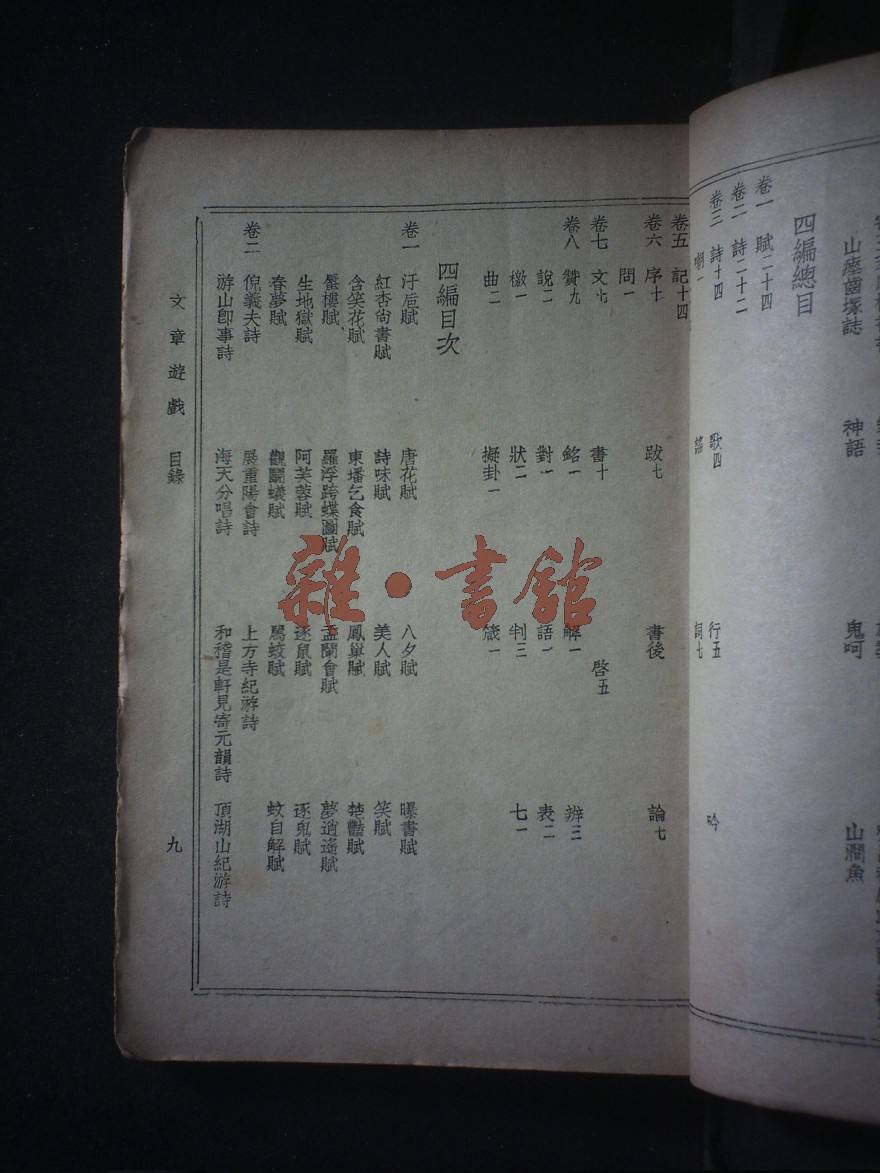 山塵齒塚誌 神語 鬼呵 山澗魚
四編總目
卷一 賦二十四
卷二 詩二十二
卷三 詩十四 歌四 行五 吟
謠 詞七
卷五 記十四
卷六 序十 跋七 書後 論七
問一
卷七 文七 書十 啓五
卷八 贊九 銘一 解一 辨三
說二 對一 語一 表二
檄一 狀二 判三 七一
曲二 擬卦一 箴一
四編目次
卷一 汙巵賦 唐花賦 八夕賦 曝書賦
紅杏尙書賦 詩味賦 美人賦 笑賦
含笑花賦 東墦乞食賦 鳳巢賦 楚豔賦
蜃樓賦 羅浮跨蝶圖賦 盂蘭會賦 夢逍遙賦
生地獄賦 阿芙蓉賦 逐鼠賦 逐鬼賦
春夢賦 觀鬭蟻賦 罵蚊賦 蚊自解賦
卷二 倪義夫詩 展重陽會詩 上方寺紀游詩
游山卽事詩 海天分唱詩 和稽是軒見寄元韻詩 頂湖山紀游詩
文章遊戲 目錄 九
雜·書館